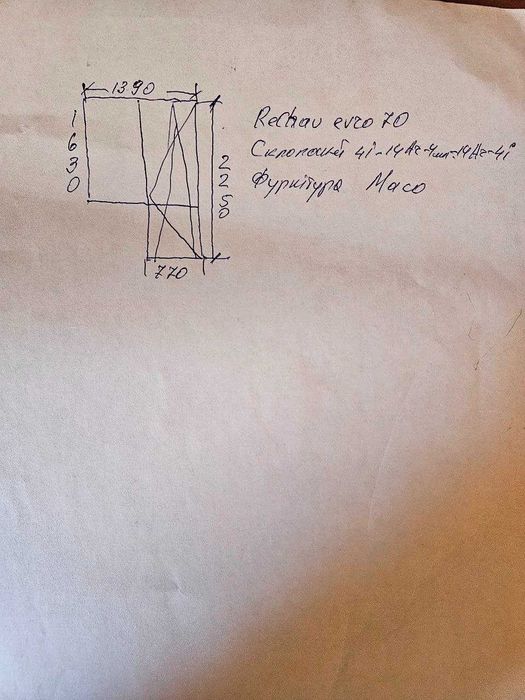 1390
1630
2250
770
Rechau evro 70
Склопакет 4i-14Ar-4мм-14Ar-4i
Фурнітура Maco